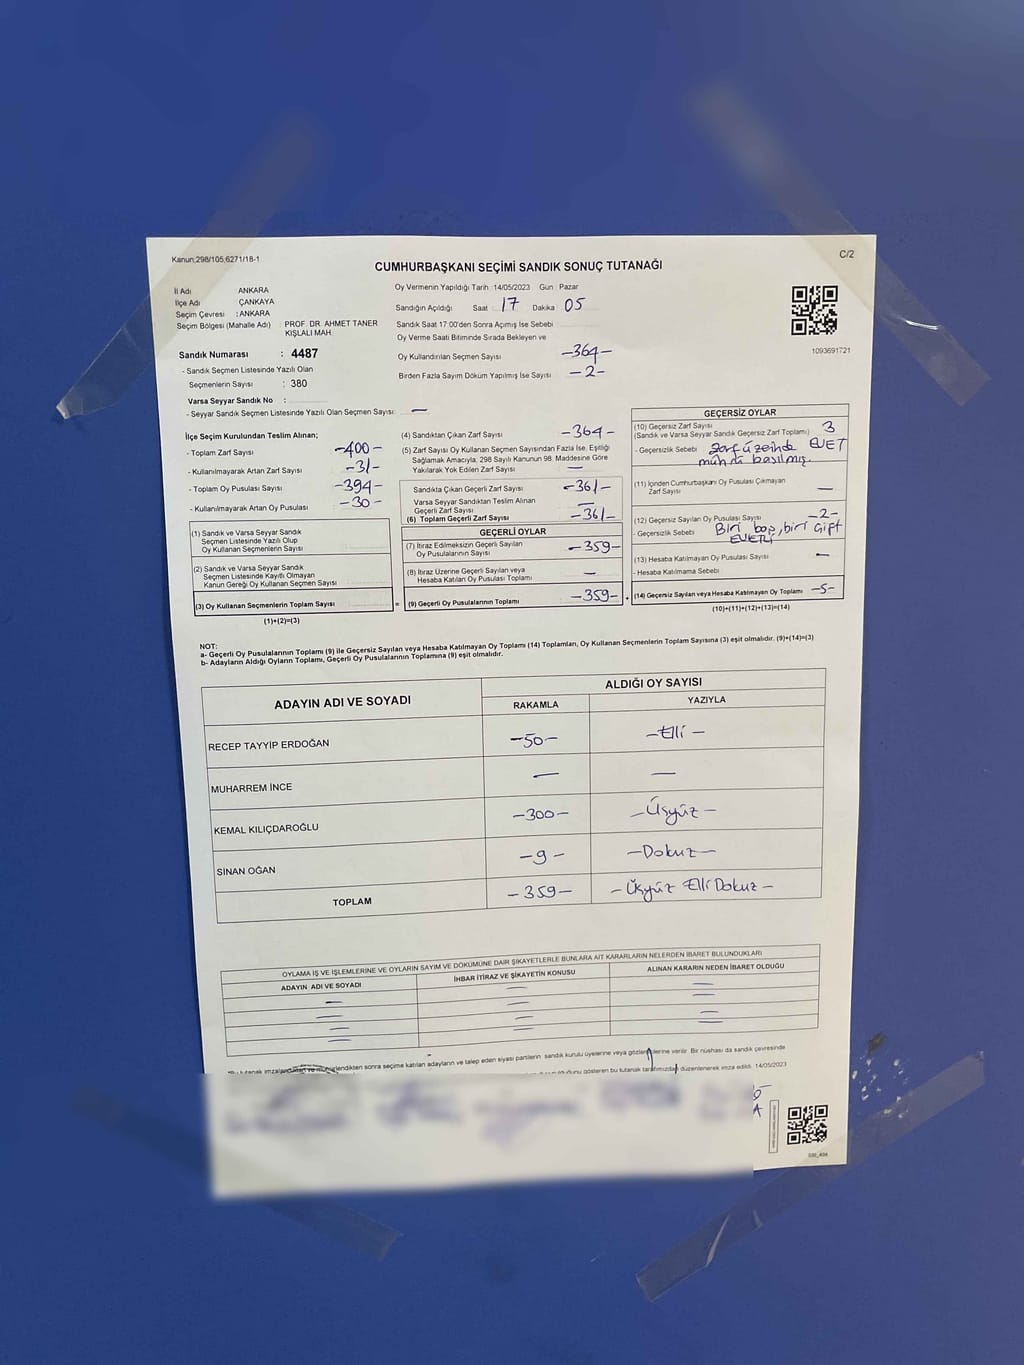 Kanun;298/105;6271/18-1
C/2
CUMHURBAŞKANI SEÇİMİ SANDIK SONUÇ TUTANAĞI
İl Adı ANKARA
İlçe Adı ÇANKAYA
Seçim Çevresi : ANKARA
Seçim Bölgesi (Mahalle Adı) : PROF. DR. AHMET TANER
KIŞLALI MAH.
Sandık Numarası : 4487
- Sandık Seçmen Listesinde Yazılı Olan
Seçmenlerin Sayısı : 380
Varsa Seyyar Sandık No :
- Seyyar Sandık Seçmen Listesinde Yazılı Olan Seçmen Sayısı: —
Oy Vermenin Yapıldığı Tarih 14/05/2023 Gün : Pazar
Sandığın Açıldığı Saat 17 Dakika 05
Sandık Saat 17:00'den Sonra Açılmış İse Sebebi
Oy Verme Saati Bitiminde Sırada Bekleyen ve
Oy Kullandırılan Seçmen Sayısı -364-
Birden Fazla Sayım Döküm Yapılmış İse Sayısı -2-
1093691721
İlçe Seçim Kurulundan Teslim Alınan;
- Toplam Zarf Sayısı -400-
- Kullanılmayarak Artan Zarf Sayısı -31-
- Toplam Oy Pusulası Sayısı -394-
- Kullanılmayarak Artan Oy Pusulası -30-
(1) Sandık ve Varsa Seyyar Sandık
Seçmen Listesinde Yazılı Olup
Oy Kullanan Seçmenlerin Sayısı
(2) Sandık ve Varsa Seyyar Sandık
Seçmen Listesinde Kayıtlı Olmayan
Kanun Gereği Oy Kullanan Seçmen Sayısı
(3) Oy Kullanan Seçmenlerin Toplam Sayısı =
(1)+(2)=(3)
(4) Sandıktan Çıkan Zarf Sayısı -364-
(5) Zarf Sayısı Oy Kullanan Seçmen Sayısından Fazla İse, Eşitliği
Sağlamak Amacıyla, 298 Sayılı Kanunun 98. Maddesine Göre
Yakılarak Yok Edilen Zarf Sayısı —
Sandıkta Çıkan Geçerli Zarf Sayısı -361-
Varsa Seyyar Sandıktan Teslim Alınan
Geçerli Zarf Sayısı —
(6) Toplam Geçerli Zarf Sayısı -361-
GEÇERLİ OYLAR
(7) İtiraz Edilmeksizin Geçerli Sayılan
Oy Pusulalarının Sayısı -359-
(8) İtiraz Üzerine Geçerli Sayılan veya
Hesaba Katılan Oy Pusulası Toplamı —
(9) Geçerli Oy Pusulalarının Toplamı -359- +
GEÇERSİZ OYLAR
(10) Geçersiz Zarf Sayısı 3
(Sandık ve Varsa Seyyar Sandık Geçersiz Zarf Toplamı)
- Geçersizlik Sebebi zarf üzerinde EVET
mührü basılmış.
(11) İçinden Cumhurbaşkanı Oy Pusulası Çıkmayan
Zarf Sayısı —
(12) Geçersiz Sayılan Oy Pusulası Sayısı -2-
- Geçersizlik Sebebi Biri boş, biri Çift
EVETLİ
(13) Hesaba Katılmayan Oy Pusulası Sayısı —
- Hesaba Katılmama Sebebi
(14) Geçersiz Sayılan veya Hesaba Katılmayan Oy Toplamı -5-
(10)+(11)+(12)+(13)=(14)
NOT:
a- Geçerli Oy Pusulalarının Toplamı (9) ile Geçersiz Sayılan veya Hesaba Katılmayan Oy Toplamı (14) Toplamları, Oy Kullanan Seçmenlerin Toplam Sayısına (3) eşit olmalıdır. (9)+(14)=(3)
b- Adayların Aldığı Oyların Toplamı, Geçerli Oy Pusulalarının Toplamına (9) eşit olmalıdır.
ADAYIN ADI VE SOYADI
ALDIĞI OY SAYISI
RAKAMLA YAZIYLA
RECEP TAYYİP ERDOĞAN -50- -Elli-
MUHARREM İNCE — —
KEMAL KILIÇDAROĞLU -300- -Üçyüz-
SİNAN OĞAN -9- -Dokuz-
TOPLAM -359- -Üçyüz Elli Dokuz-
OYLAMA İŞ VE İŞLEMLERİNE VE OYLARIN SAYIM VE DÖKÜMÜNE DAİR ŞİKAYETLERLE BUNLARA AİT KARARLARIN NELERDEN İBARET BULUNDUKLARI
ADAYIN ADI VE SOYADI İHBAR İTİRAZ VE ŞİKAYETİN KONUSU ALINAN KARARIN NEDEN İBARET OLDUĞU
sonra seçime katılan adayların ve talep eden siyasi partilerin sandık kurulu üyelerine veya verilir. Bir nüshası da sandık çevresinde
gösteren bu tutanak tarafımızdan düzenlenerek imza edildi. 14/05/2023